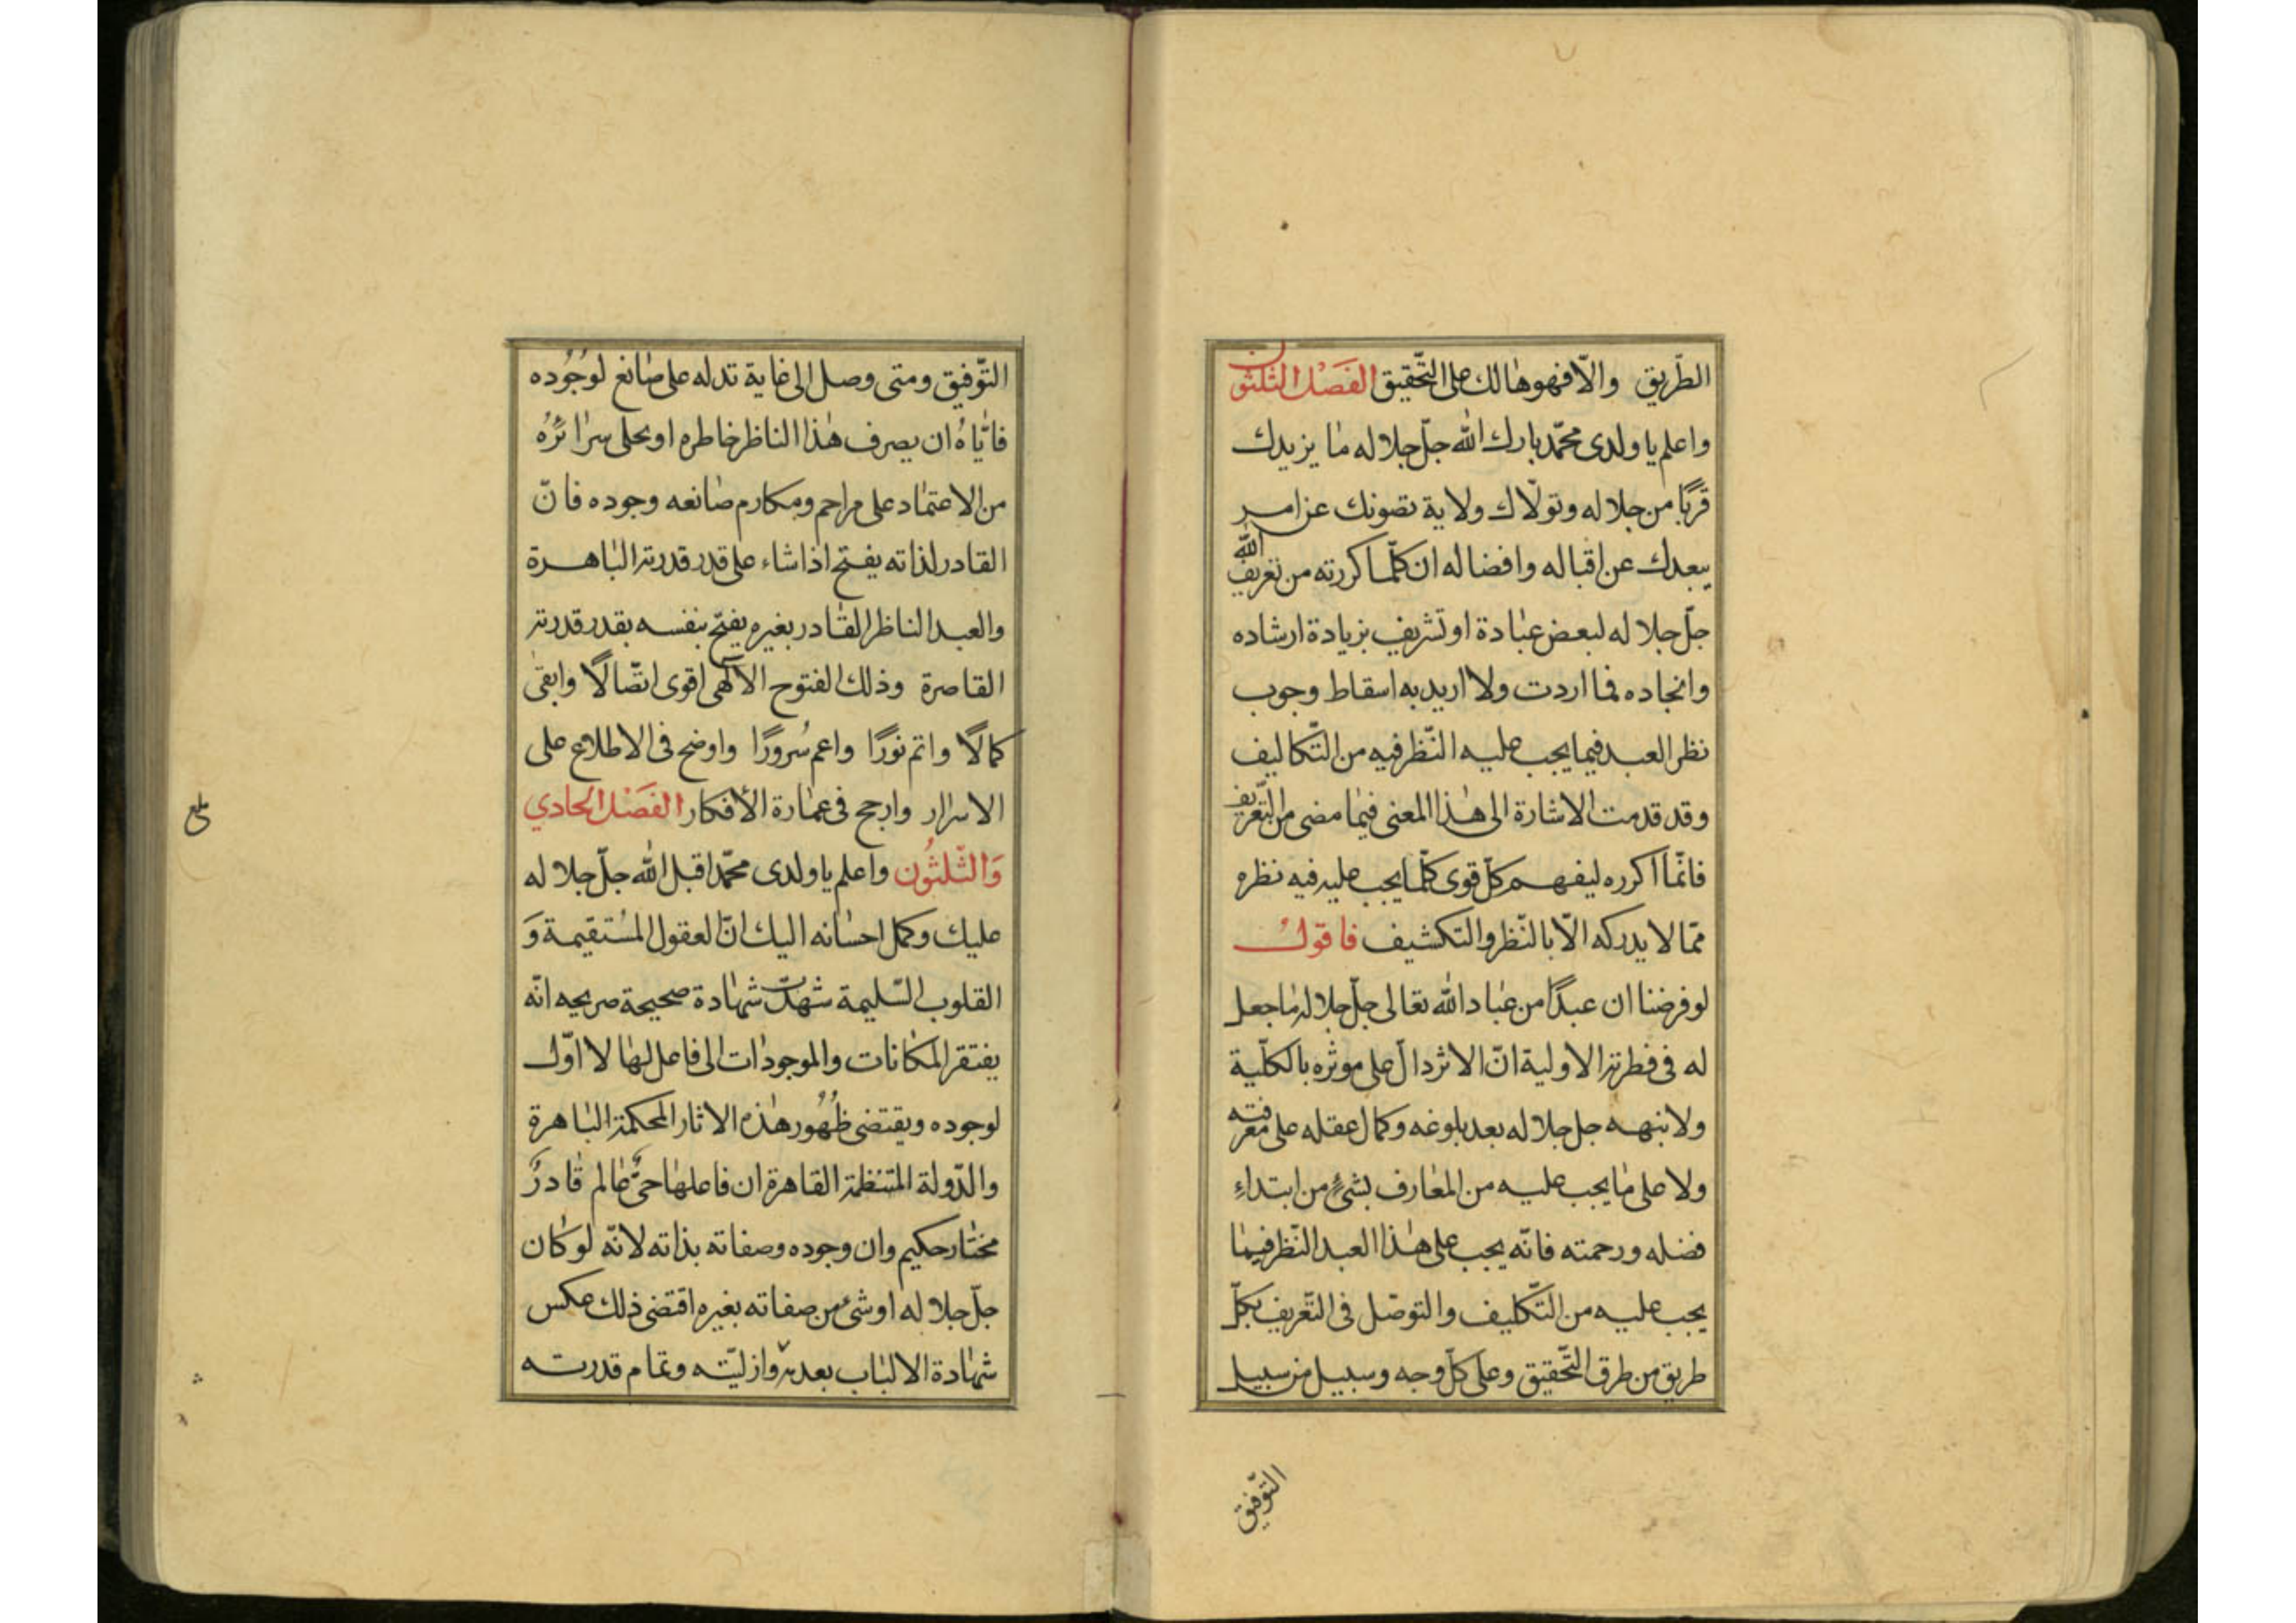 الطّريق والّا فهو هالك على التّحقيق الفَصْل الثلثون
واعلم يا ولدى محمّد بارك الله جلّ جلاله ما يزيدك
قربًا من جلاله وتولّاك ولاية تصونك عن امر
يبعدك عن اقباله وافضاله ان كلّما كررته من تعريف الله
جلّ جلاله لبعض عبادة او تشريف بزيادة ارشاده
وانجاده فما اردت ولا اريد به اسقاط وجوب
نظر العبد فيما يجب عليه النّظر فيه من التّكاليف
وقد قدمت الاشارة الى هذا المعنى فيما مضى من التّعريف
فانّما اكرره ليفهم كلّ قوى كلّما يجب عليه فيه نظره
ممّا لا يدركه الّا بالنّظر والتكشيف فاقول
لو فرضنا ان عبدًا من عباد الله تعالى جلّ جلاله ما جعل
له فى فطرته الاولية انّ الاثر دالّ على موثره بالكلّية
ولا نبهه جل جلاله بعد بلوغه وكمال عقله على معرفته
ولا على ما يجب عليه من المعارف بشىءٍ من ابتداءِ
فضله ورحمته فانّه يجب على هذا العبد النّظر فيما
يجب عليه من التّكليف والتوصّل فى التّعريف بكلّ
طريق من طرق التّحقيق وعلى كلّ وجه وسبيل من سبيل
التّوفيق
التّوفيق ومتى وصل الى غاية تدله على صانع لوجُوده
فايّاهُ ان يصرف هذا الناظر خاطره او يخلى سرائرُه
من الاعتماد على مراحم ومكارم صانعه وجوده فانّ
القادر لذاته يفتح اذا شاء على قدر قدرته الباهرة
والعبد الناظر القادر بغيره يفتح بنفسه بقدر قدرته
القاصرة وذلك الفتوح الالهى اقوى اتّصالًا وابقى
كمالًا واتم نورًا واعم سُرورًا واوضح فى الاطلاع على
الاسرار وارجح فى عمارة الأفكار الفَصْل الحادي
وَالثّلثُون واعلم يا ولدى محمّد اقبل الله جلّ جلاله
عليك وكمل احسانه اليك انّ العقول المُستقيمة وَ
القلوب السّليمة شهدت شهادة صحيحة صريحه انّه
يفتقر المكانات والموجودات الى فاعل لها لا اوّل
لوجوده ويقتضى ظُهُور هذه الاثار المحكمة الباهرة
والدّولة المتنظمة القاهرة ان فاعلها حىٌّ عالم قادرٌ
مختار حكيم وان وجوده وصفاته بذاته لانّه لو كان
جلّ جلاله او شىء من صفاته بغيره اقتضى ذلك عكس
شهادة الالباب بعدمه وازليّته وتمام قدرته
بلغ